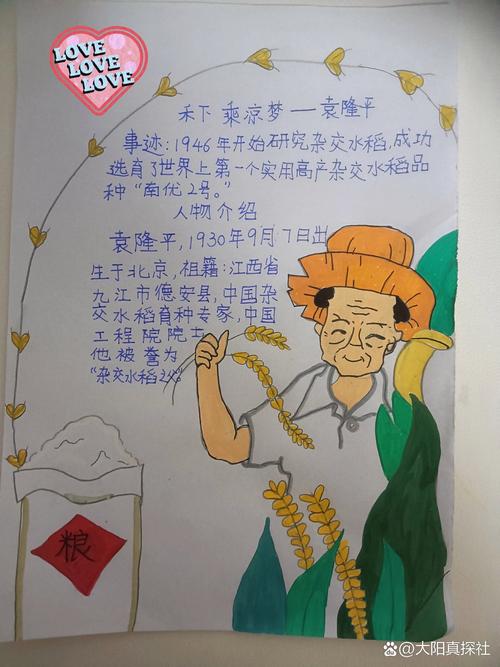 LOVE
LOVE
LOVE
禾下乘凉梦——袁隆平
事迹:1946年开始研究杂交水稻,成功
选育了世界上第一个实用高产杂交水稻品
种“南优2号。”
人物介绍
袁隆平,1930年9月7日出
生于北京,祖籍:江西省
九江市德安县,中国杂
交水稻育种专家,中国
工程院院士
他被誉为
“杂交水稻之父”
粮
@大阳真探社